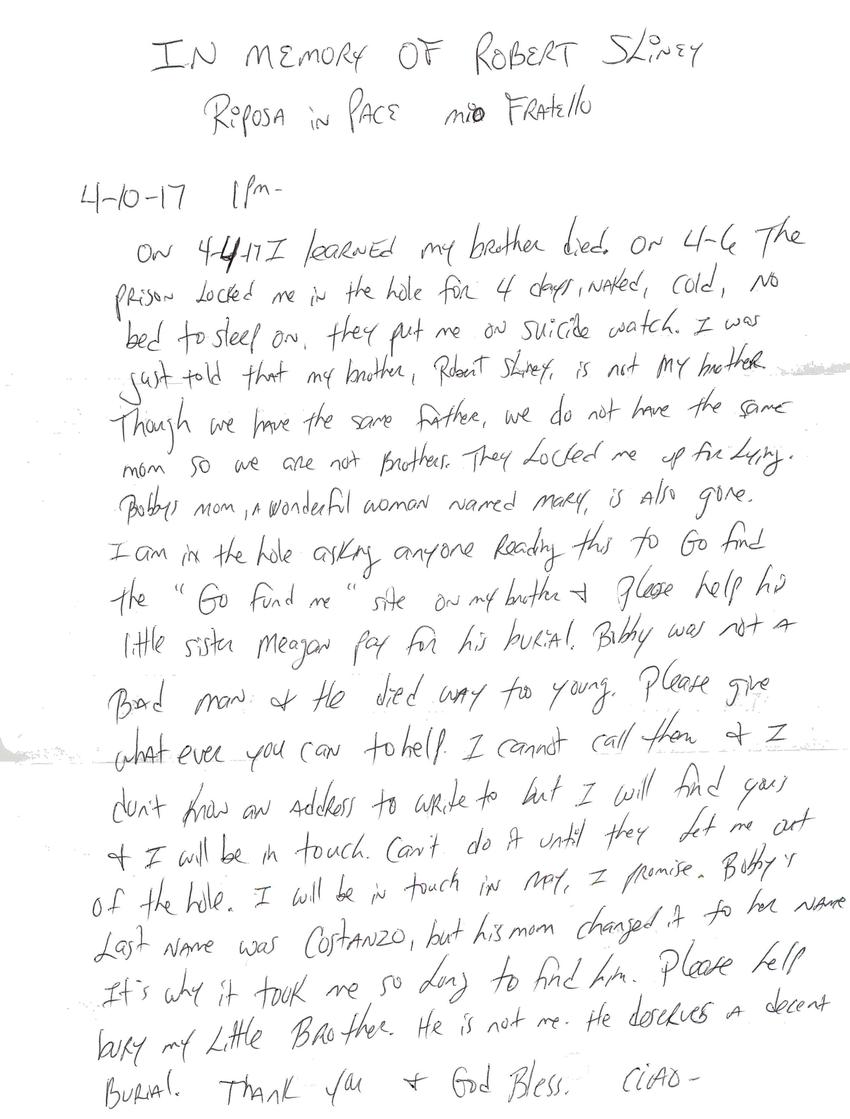 IN MEMORY OF ROBERT SLINEY
RIPOSA IN PACE mio FRATELLO
4-10-17 1 Pm-
ON 4-4-17 I LEARNED my brother died. ON 4-6 The
PRISON Locked me in the hole for 4 days, NAKED, cold, NO
bed to sleep on, they put me on suicide watch. I was
just told that my brother, Robert Sliney, is not my brother.
Though we have the same father, we do not have the same
mom so we are not Brothers. They Locked me up for Lying.
Bobbys mom, a wonderful woman named Mary, is also gone.
I am in the hole asking anyone Reading this to Go find
the "Go Fund me" site on my brother & please help his
little sister Meagan pay for his burial. Bobby was not a
Bad man & He died way too young. Please give
what ever you can to help. I cannot call them & I
don't know an address to write to but I will find yours
& I will be in touch. Can't do it until they Let me out
of the hole. I will be in touch in May, I promise. Bobby's
Last Name was Costanzo, but his mom changed it to her NAME
It's why it took me so long to find him. Please help
bury my Little Brother. He is not me. He deserves a decent
Burial. Thank you & God Bless. CIAO-